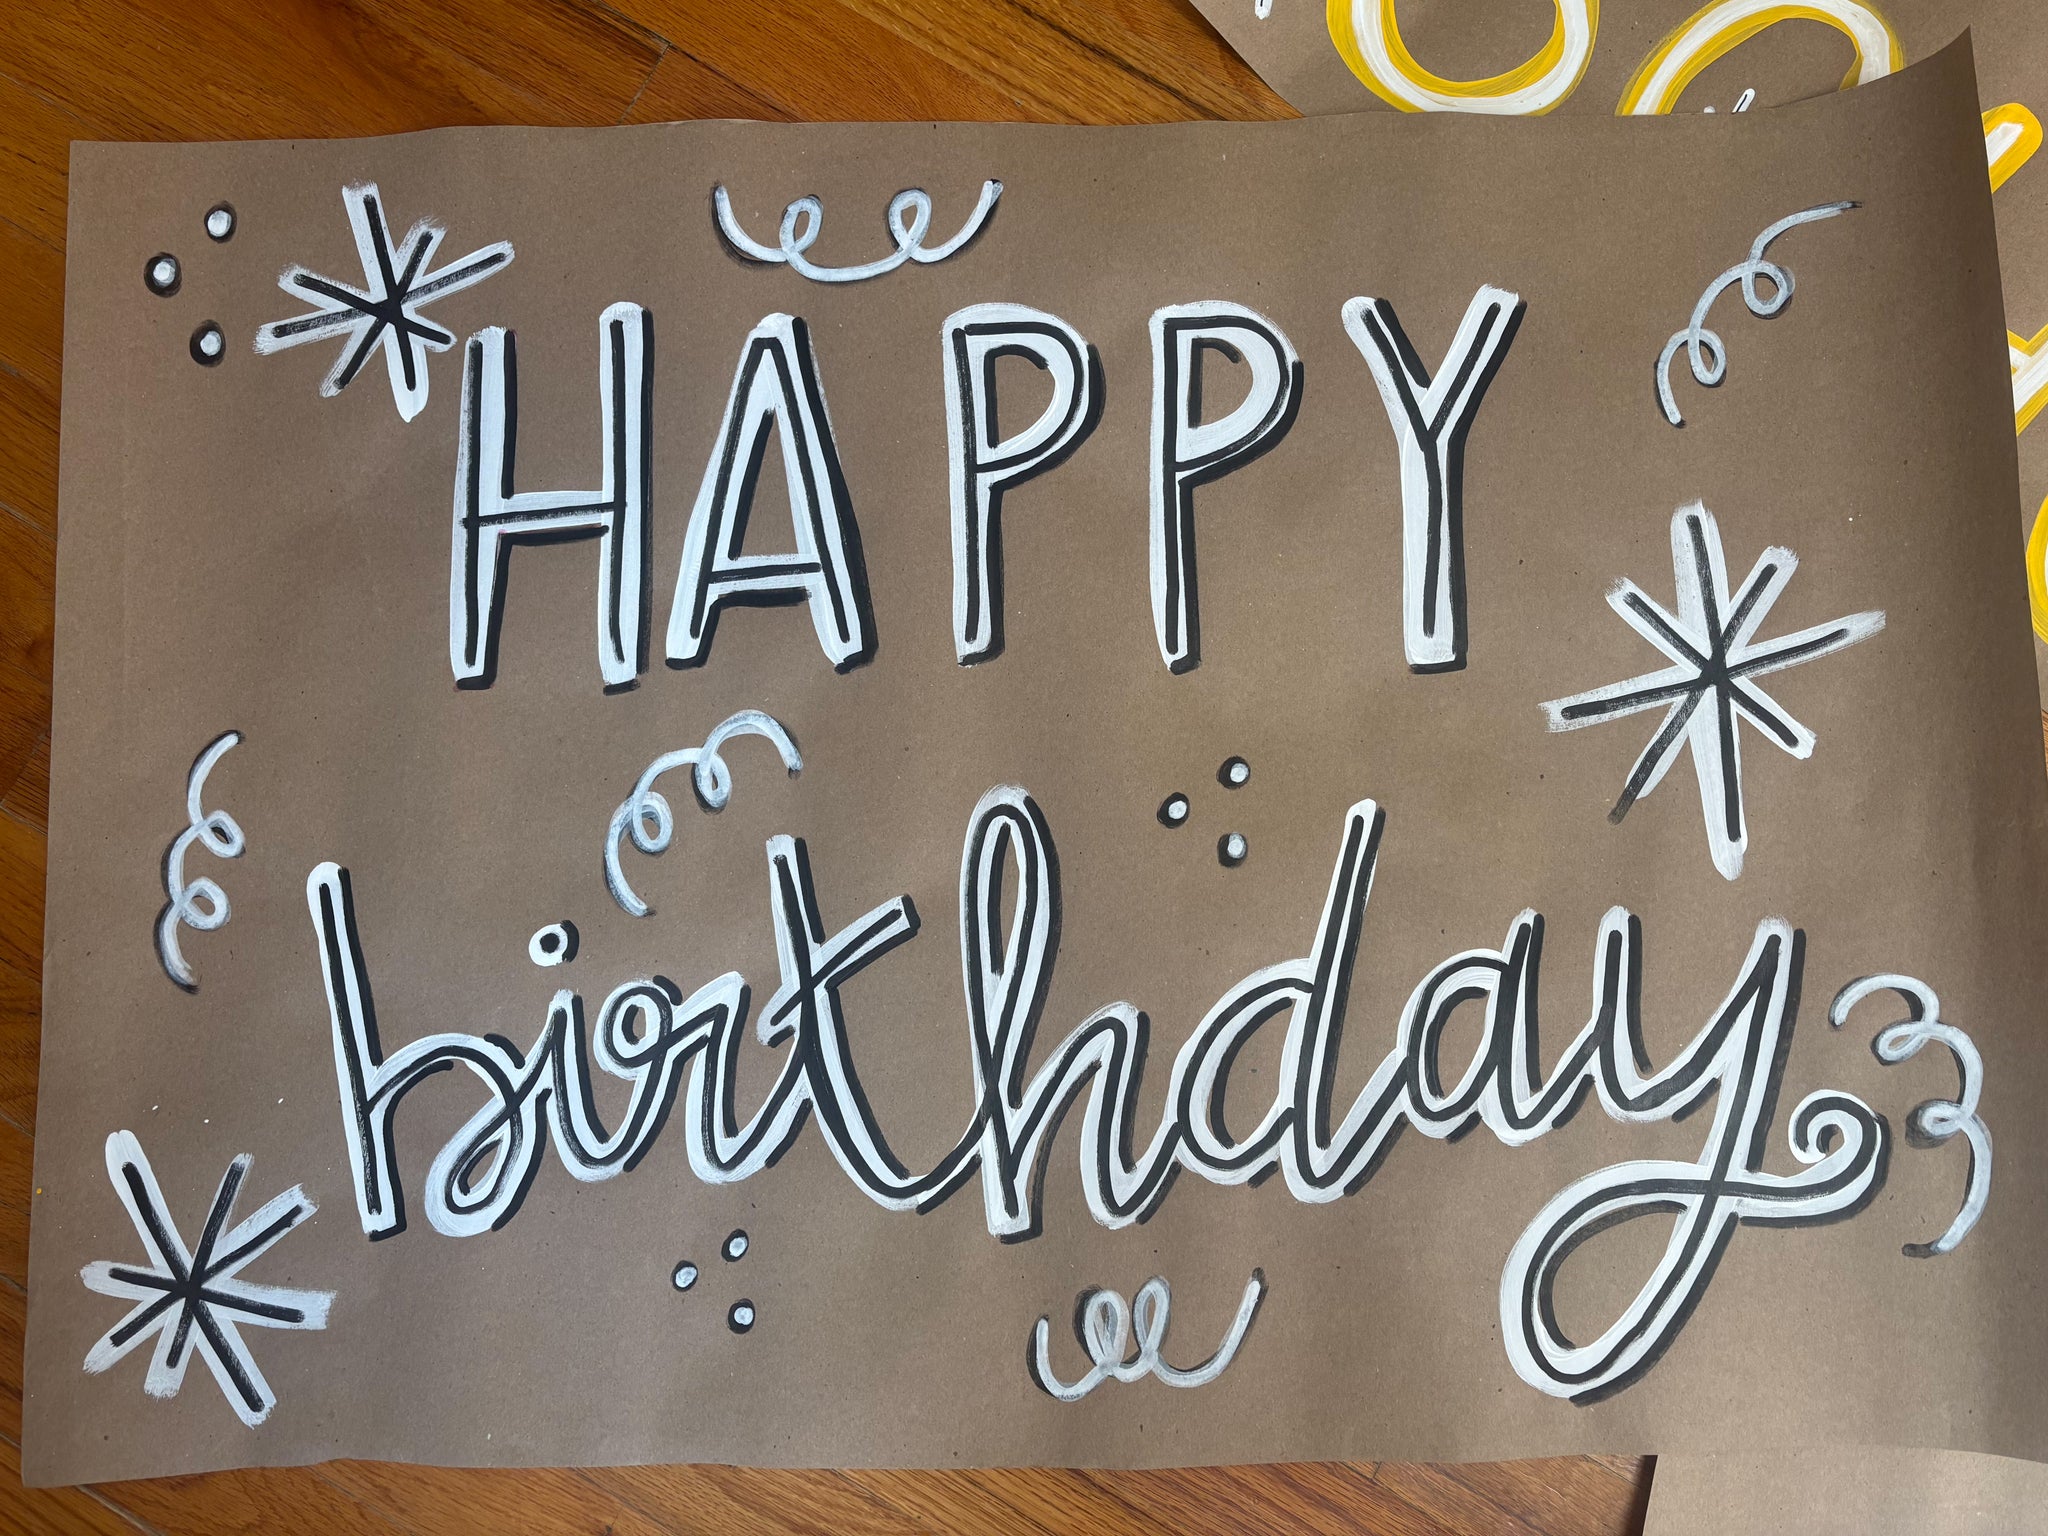 HAPPY
birthday